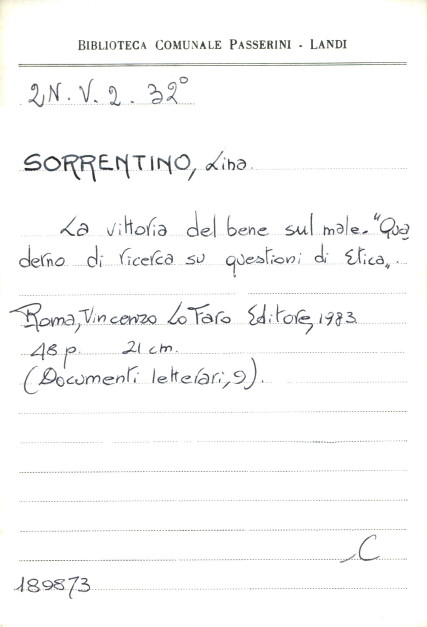 BIBLIOTECA COMUNALE PASSERINI - LANDI
2N. V. 2. 32°
SORRENTINO, Lina.
La vittoria del bene sul male. "Qua
derno di ricerca su questioni di Etica„.
Roma, Vincenzo Lo Faro Editore, 1983
48 p. 21 cm.
(Documenti letterari, 9).
C
189873